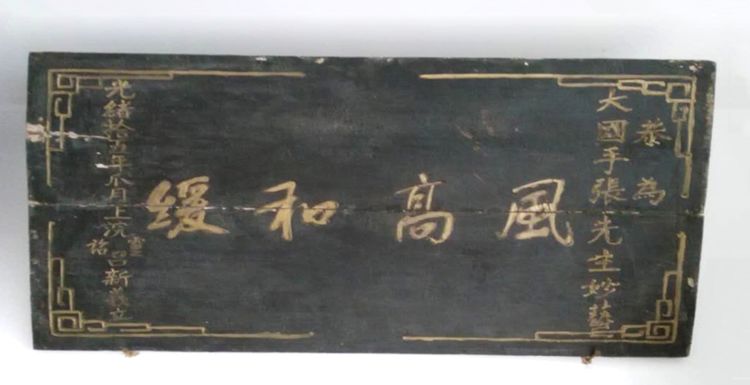 恭為
大國手張先生妙藝
風高和緩
光緒拾五年八月上浣
呂新義立